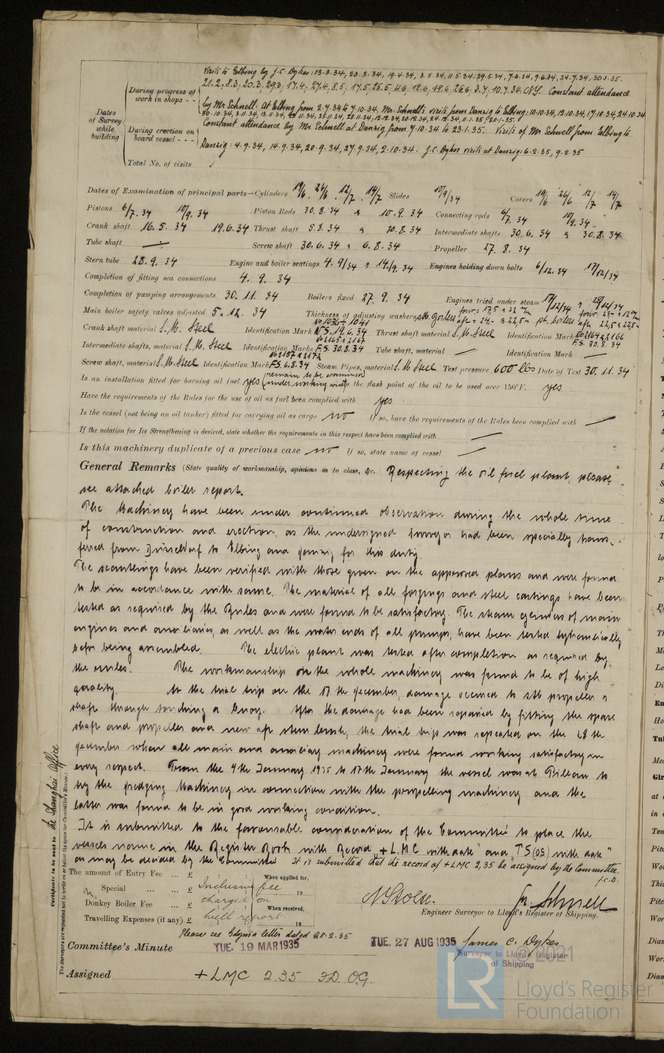 Visits to Elbing by J.C. Dykes: 13.3.34, 20.3.34, 19.4.34, 3.5.34, 11.5.34, 29.5.34, 7.6.34, 9.6.34, 24.7.34, 30.1.35.
Dates of Survey while building
During progress of work in shops - -
21.2, 8.3, 20.3, 29.3, 17.4, 27.4, 8.5, 17.5, 25.5, 4.6, 12.6, 19.6, 26.6, 3.7, 10.7.34. Constant attendance
by Mr Schnell: At Elbing from 2.7.34 to 7.10.34. Mr. Schnell's visits from Danzig to Elbing: 10.10.34, 12.10.34, 17.10.34, 24.10.34
During erection on board vessel - - -
Constant attendance by Mr Schnell at Danzig from 7.10.34 to 23.1.35. Visits of Mr Schnell from Elbing to
Danzig: 4.9.34, 14.9.34, 20.9.34, 27.9.34, 2.10.34. J.C. Dykes visits at Danzig: 6.2.35, 9.2.35
Total No. of visits
Dates of Examination of principal parts—Cylinders 19/6. 26/6. 12/7. 14/7 Slides 10/9/34 Covers 19/6 26/6 12/7 14/7
Pistons 6/7.34 10/9.34 Piston Rods 30.8.34 & 10.9.34 Connecting rods 6/7.34 10/9.34
Crank shaft 16.5.34 19.6.34 Thrust shaft 5.8.34 & 30.8.34 Intermediate shafts 30.6.34 & 30.8.34
Tube shaft — Screw shaft 30.6.34 & 6.8.34 Propeller 27.8.34
Stern tube 28.9.34 Engine and boiler seatings 4.9/34 & 14/9.34 Engines holding down bolts 6/12.34 17/12/34
Completion of fitting sea connections 4.9.34
Completion of pumping arrangements 30.11.34 Boilers fixed 27.9.34 Engines tried under steam 17/12/34 & 28/12/34
Main boiler safety valves adjusted 5.12.34 Thickness of adjusting washers
Crank shaft material S.M. Steel Identification Mark F.S. 19.6.34 Thrust shaft material S.M. Steel Identification Mark F.S. 30.8.34
Intermediate shafts, material S.M. Steel Identification Marks F.S. 30.8.34 Tube shaft, material — Identification Mark —
Screw shaft, material S.M. Steel Identification Mark F.S. 6.8.34 Steam Pipes, material S.M. Steel Test pressure 600 lbs Date of Test 30.11.34
Is an installation fitted for burning oil fuel yes Is the flash point of the oil to be used over 150°F. yes
Have the requirements of the Rules for the use of oil as fuel been complied with yes
Is the vessel (not being an oil tanker) fitted for carrying oil as cargo no If so, have the requirements of the Rules been complied with —
If the notation for Ice Strengthening is desired, state whether the requirements in this respect have been complied with —
Is this machinery duplicate of a previous case no If so, state name of vessel —
General Remarks (State quality of workmanship, opinions as to class, &c. Respecting the oil fuel plant, please
see attached boiler report.
The Machinery have been under continued observation during the whole time
of construction and erection, as the undersigned surveyor had been specially trans-
ferred from Düsseldorf to Elbing and Danzig for this duty.
The scantlings have been verified with those given on the approved plans and were found
to be in accordance with same. The material of all forgings and steel castings have been
tested as required by the Rules and were found to be satisfactory. The steam cylinders of main
engines and auxiliaries, as well as the water ends of all pumps, have been tested hydraulically
before being assembled. The electric plant was tested after completion as required by
the rules. The workmanship on the whole machinery was found to be of high
quality. At the trial trip on the 17th December, damage occurred to stb propeller &
shaft through touching a buoy. After the damage had been repaired by fitting the spare
shaft and propeller and new aft stern bush, the trial trip was repeated on the 28th
December when all main and auxiliary machinery were found working satisfactory in
every respect. From the 4th January 1935 to 17th January the vessel was at Pillau to
try the dredging machinery in connection with the propelling machinery and the
latter was found to be in good working condition.
It is submitted to the favourable consideration of the Committee to place the
vessels name in the Register Book with Record +LMC with date and "TS(OG) with date"
as may be decided by the Committee It is submitted that the record of +LMC 2,35 be assigned by the Committee.
J.C.D.
Certificate to be sent to the Shanghai Office
The amount of Entry Fee ... £ When applied for,
Special ... £ Inclusive fee 19
Donkey Boiler Fee ... £ charged on When received,
Travelling Expenses (if any) £ hull report 19
Engineer Surveyor to Lloyd's Register of Shipping.
Please see Gdynia letter dated 20.2.35
Committee's Minute TUE. 19 MAR 1935 TUE. 27 AUG 1935 James C. Dykes
Surveyor to Lloyd's Register of Shipping
Assigned +LMC 2.35 F.D. O.G.
© 2021
LR
Lloyd's Register
Foundation